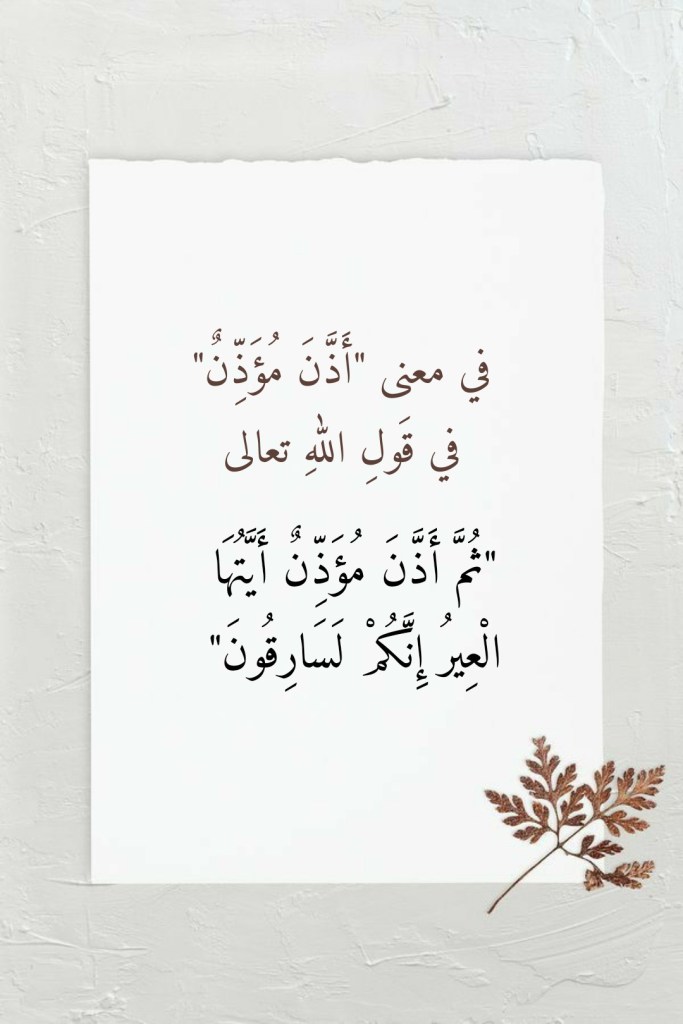 في معنى "أَذَّنَ مُؤَذِّنٌ"
في قَولِ اللهِ تعالى
"ثُمَّ أَذَّنَ مُؤَذِّنٌ أَيَّتُهَا
الْعِيرُ إِنَّكُمْ لَسَارِقُونَ"